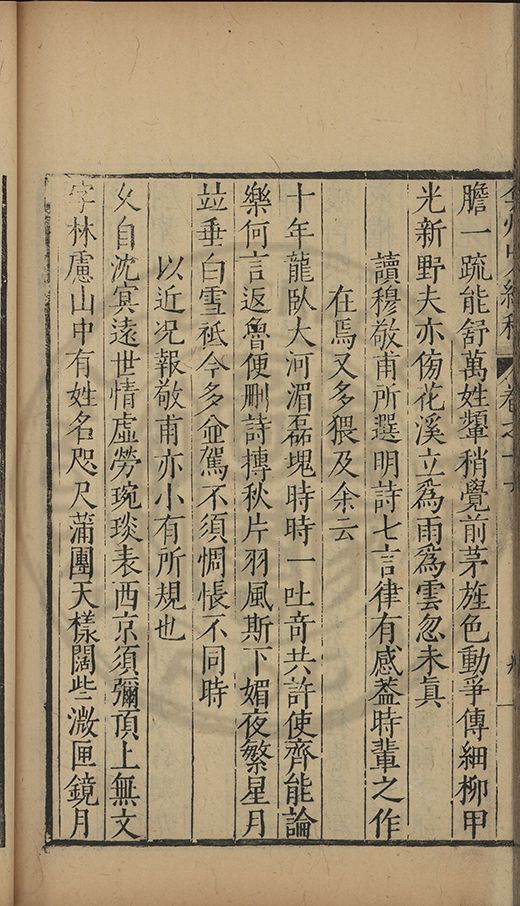 膽一疏能舒萬姓顰稍覺前茅旌色動爭傳細柳甲
光新野夫亦傍花溪立爲雨爲雲忽未真
讀穆敬甫所選明詩七言律有感葢時輩之作
在焉又多猥及余云
十年龍臥大河湄磊塊時時一吐奇共許使齊能論
樂何言返魯便刪詩摶秋片羽風斯下媚夜繁星月
竝垂白雪祗今多竝駕不須惆悵不同時
以近況報敬甫亦小有所規也
久自沈冥遠世情虛勞琬琰表西京須彌頂上無文
字林慮山中有姓名咫尺蒲團天樣闊些溦匣鏡月